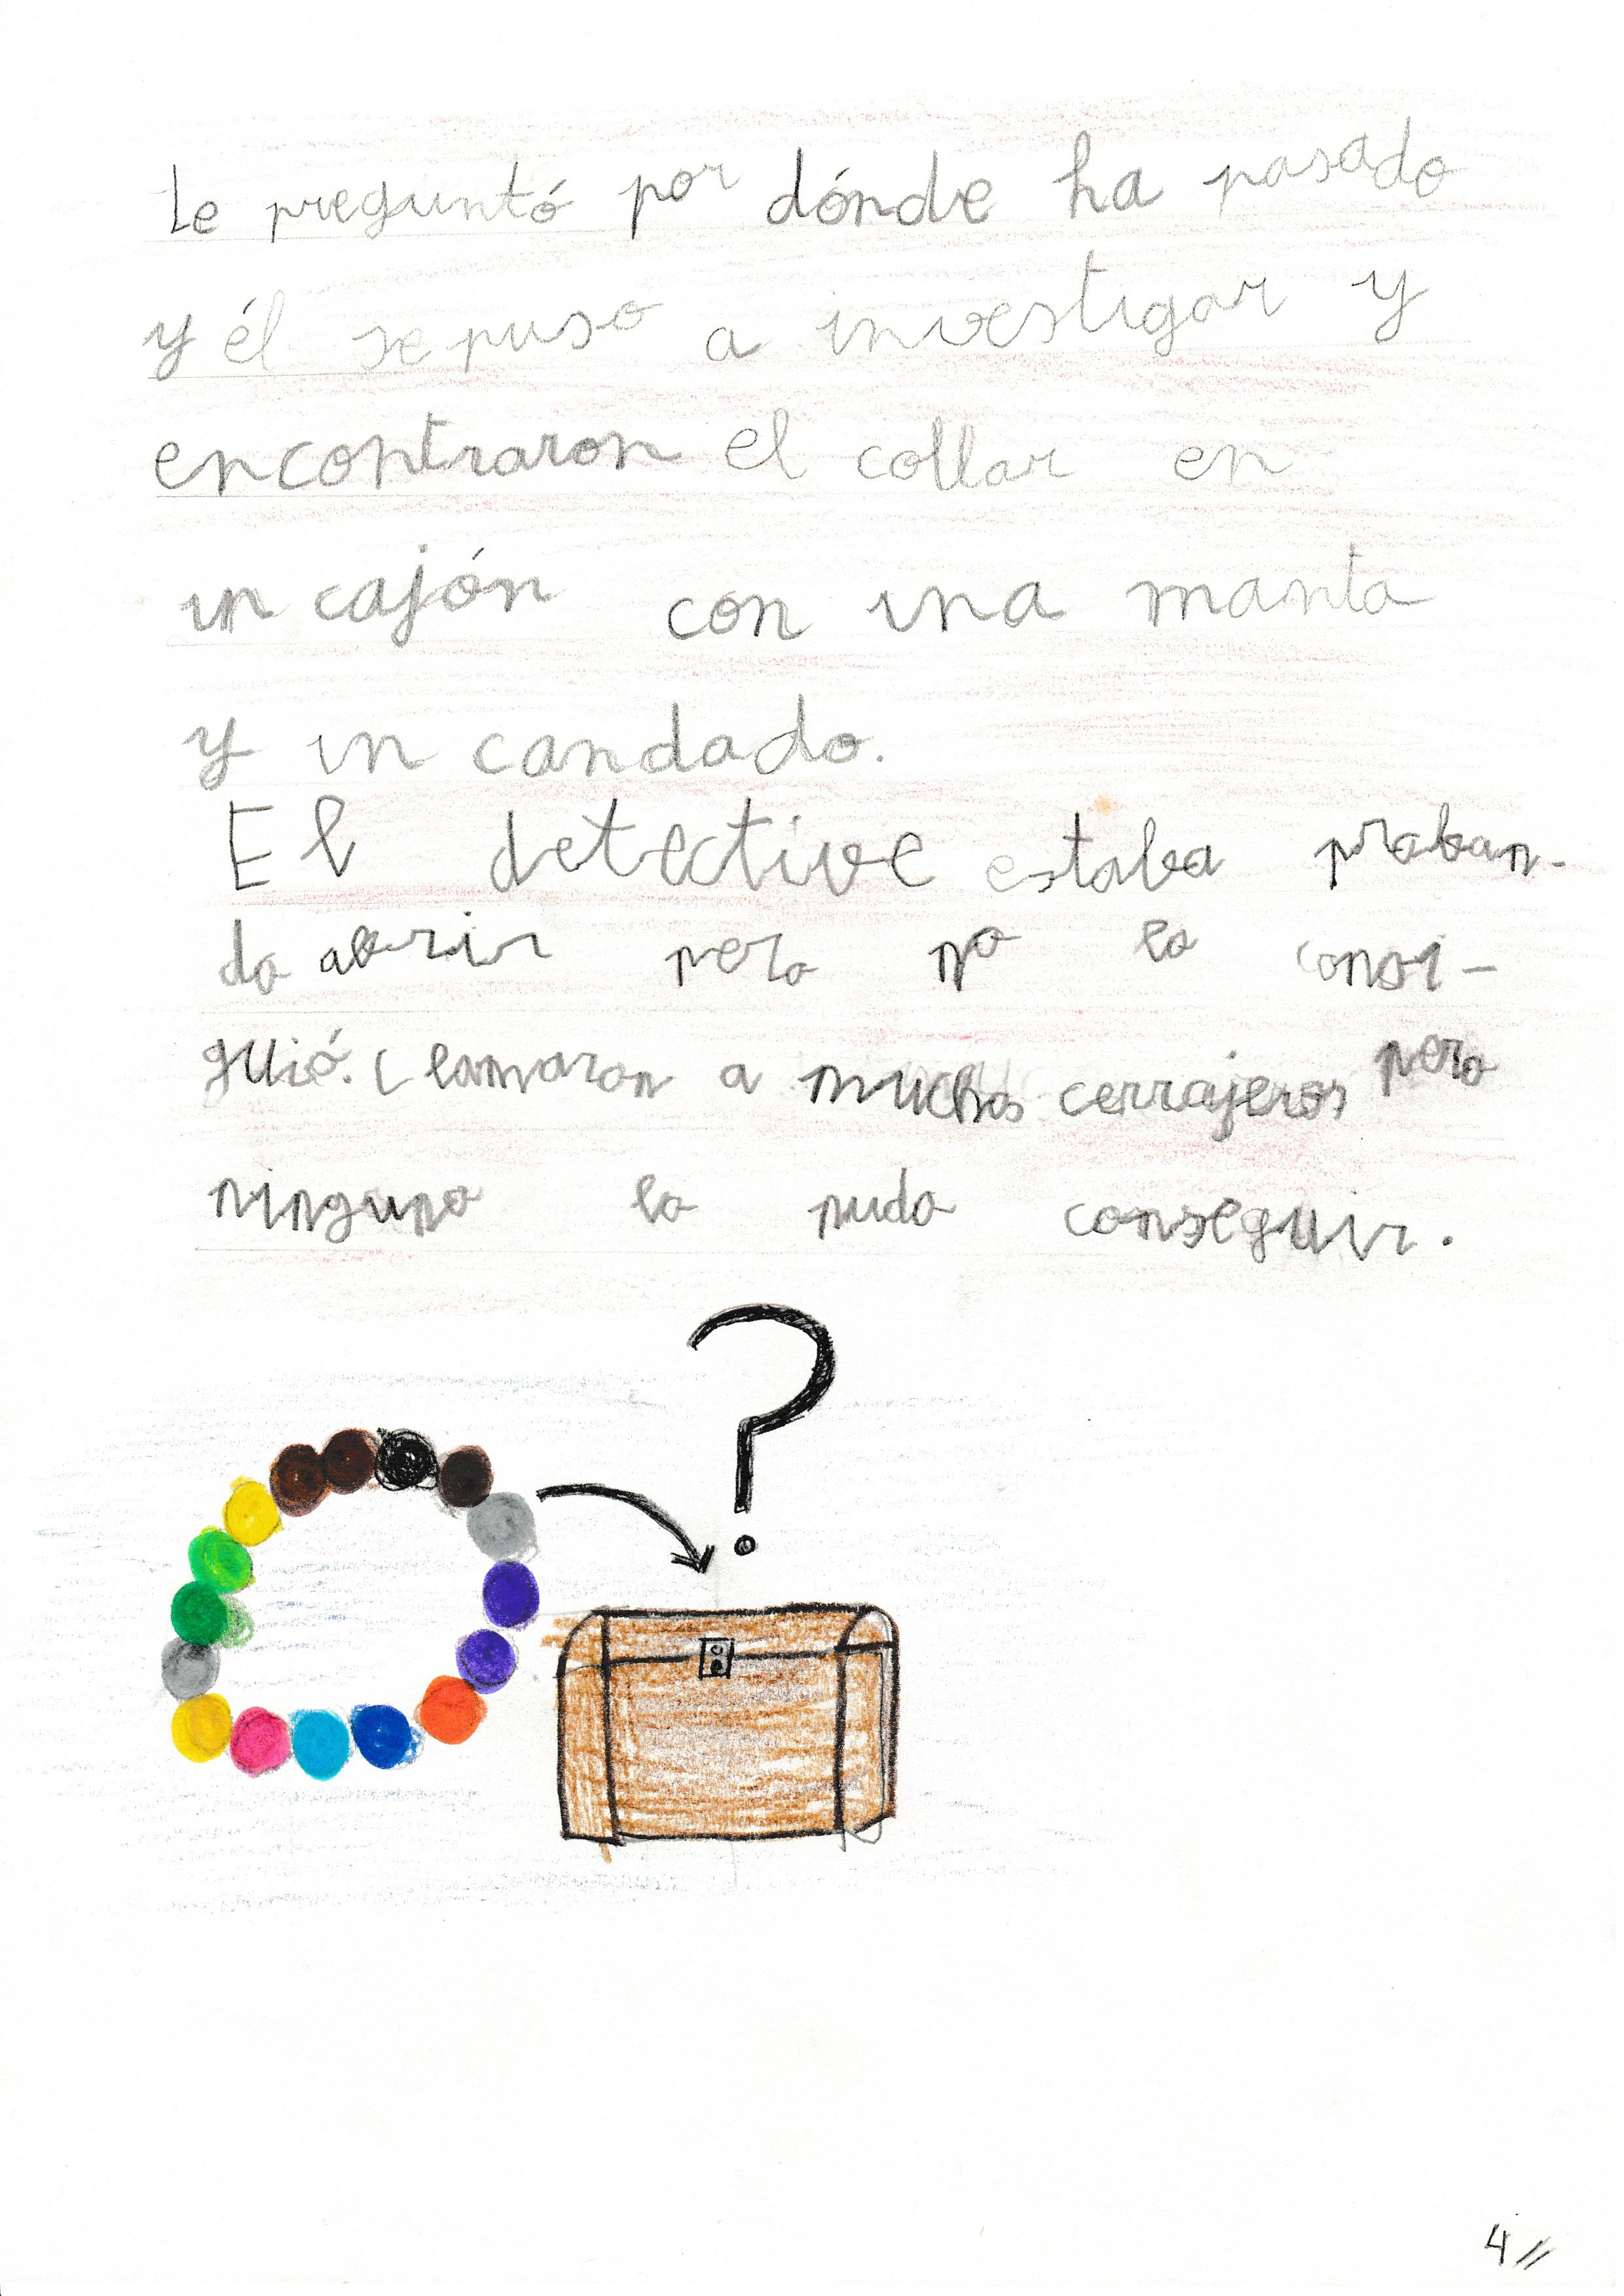 Le preguntó por dónde ha pasado
y él se puso a investigar y
encontraron el collar en
un cajón con una manta
y un candado.
El detective estaba proban-
do abrir pero no lo consi-
guió. Llamaron a muchos cerrajeros pero
ninguno lo pudo conseguir.
?
4